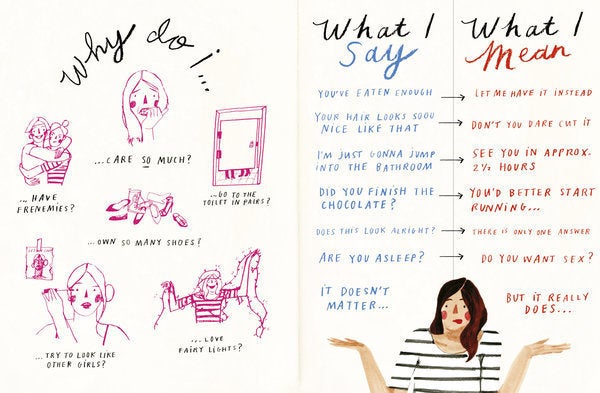 Why do I...
...CARE SO MUCH?
...HAVE
FRENEMIES?
...GO TO THE
TOILET IN PAIRS?
...OWN SO MANY SHOES?
...TRY TO LOOK LIKE
OTHER GIRLS?
...LOVE
FAIRY LIGHTS?
What I
Say
What I
Mean
YOU'VE EATEN ENOUGH → LET ME HAVE IT INSTEAD
YOUR HAIR LOOKS SOOO
NICE LIKE THAT → DON'T YOU DARE CUT IT
I'M JUST GONNA JUMP
INTO THE BATHROOM → SEE YOU IN APPROX.
2½ HOURS
DID YOU FINISH THE
CHOCOLATE? → YOU'D BETTER START
RUNNING...
DOES THIS LOOK ALRIGHT? → THERE IS ONLY ONE ANSWER
ARE YOU ASLEEP? → DO YOU WANT SEX?
IT DOESN'T
MATTER...
BUT IT REALLY
DOES...